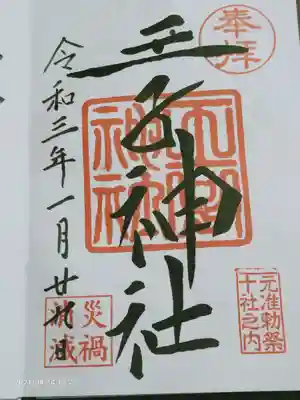 奉拝
王子神社
王子
神社
元准勅祭
十社之内
令和三年一月廿日
災禍
消滅